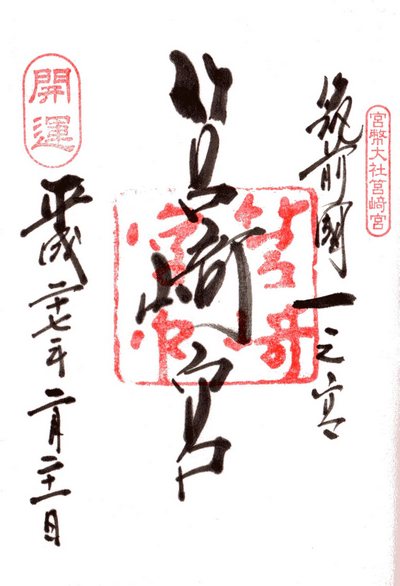 官幣大社筥崎宮
筑前國一之宮
筥崎宮
開運
平成二十七年二月二十一日